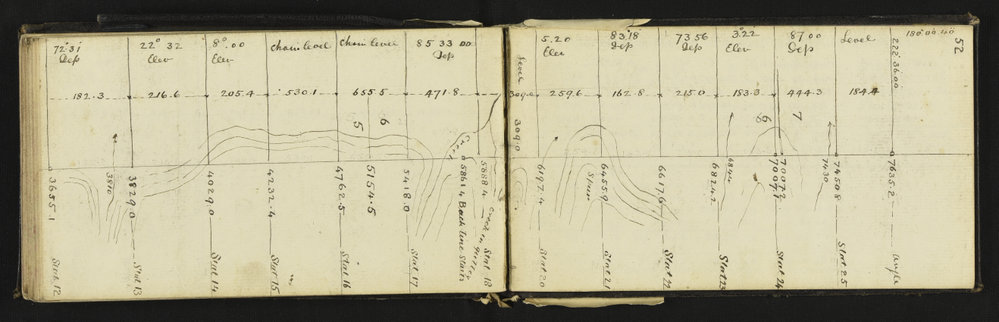 72°31 Dep
22° 32 Elev
8°.00 Elev
chain level
chain level
85 33 00 Dep
Level
5.20 Elev
83.18 Dep
73 56 Dep
3°22 Elev
87 00 Dep
Level
222° 36 00
180° 00 00
52
182.3
216.6
205.4
530.1
655.5
471.8
309.0
259.6
162.8
215.0
183.3
444.3
184.4
5
6
8
7
3655.1
3810
3829.0
4029.0
4232.4
4762.5
5154.5
5418.0
Creek
5861.4 Back line Stairs
5888.4
309.0
6197.4
6455.9
6617.6
6824.2
6844
7007.2
7007.7
7430
7450.8
7635.2
Stairs
Stat 12
Stat 13
Stat 14
Stat 15
Stat 16
Stat 17
Stat 18
Stat 20
Stat 21
Stat 22
Stat 23
Stat 24
Stat 25
angle